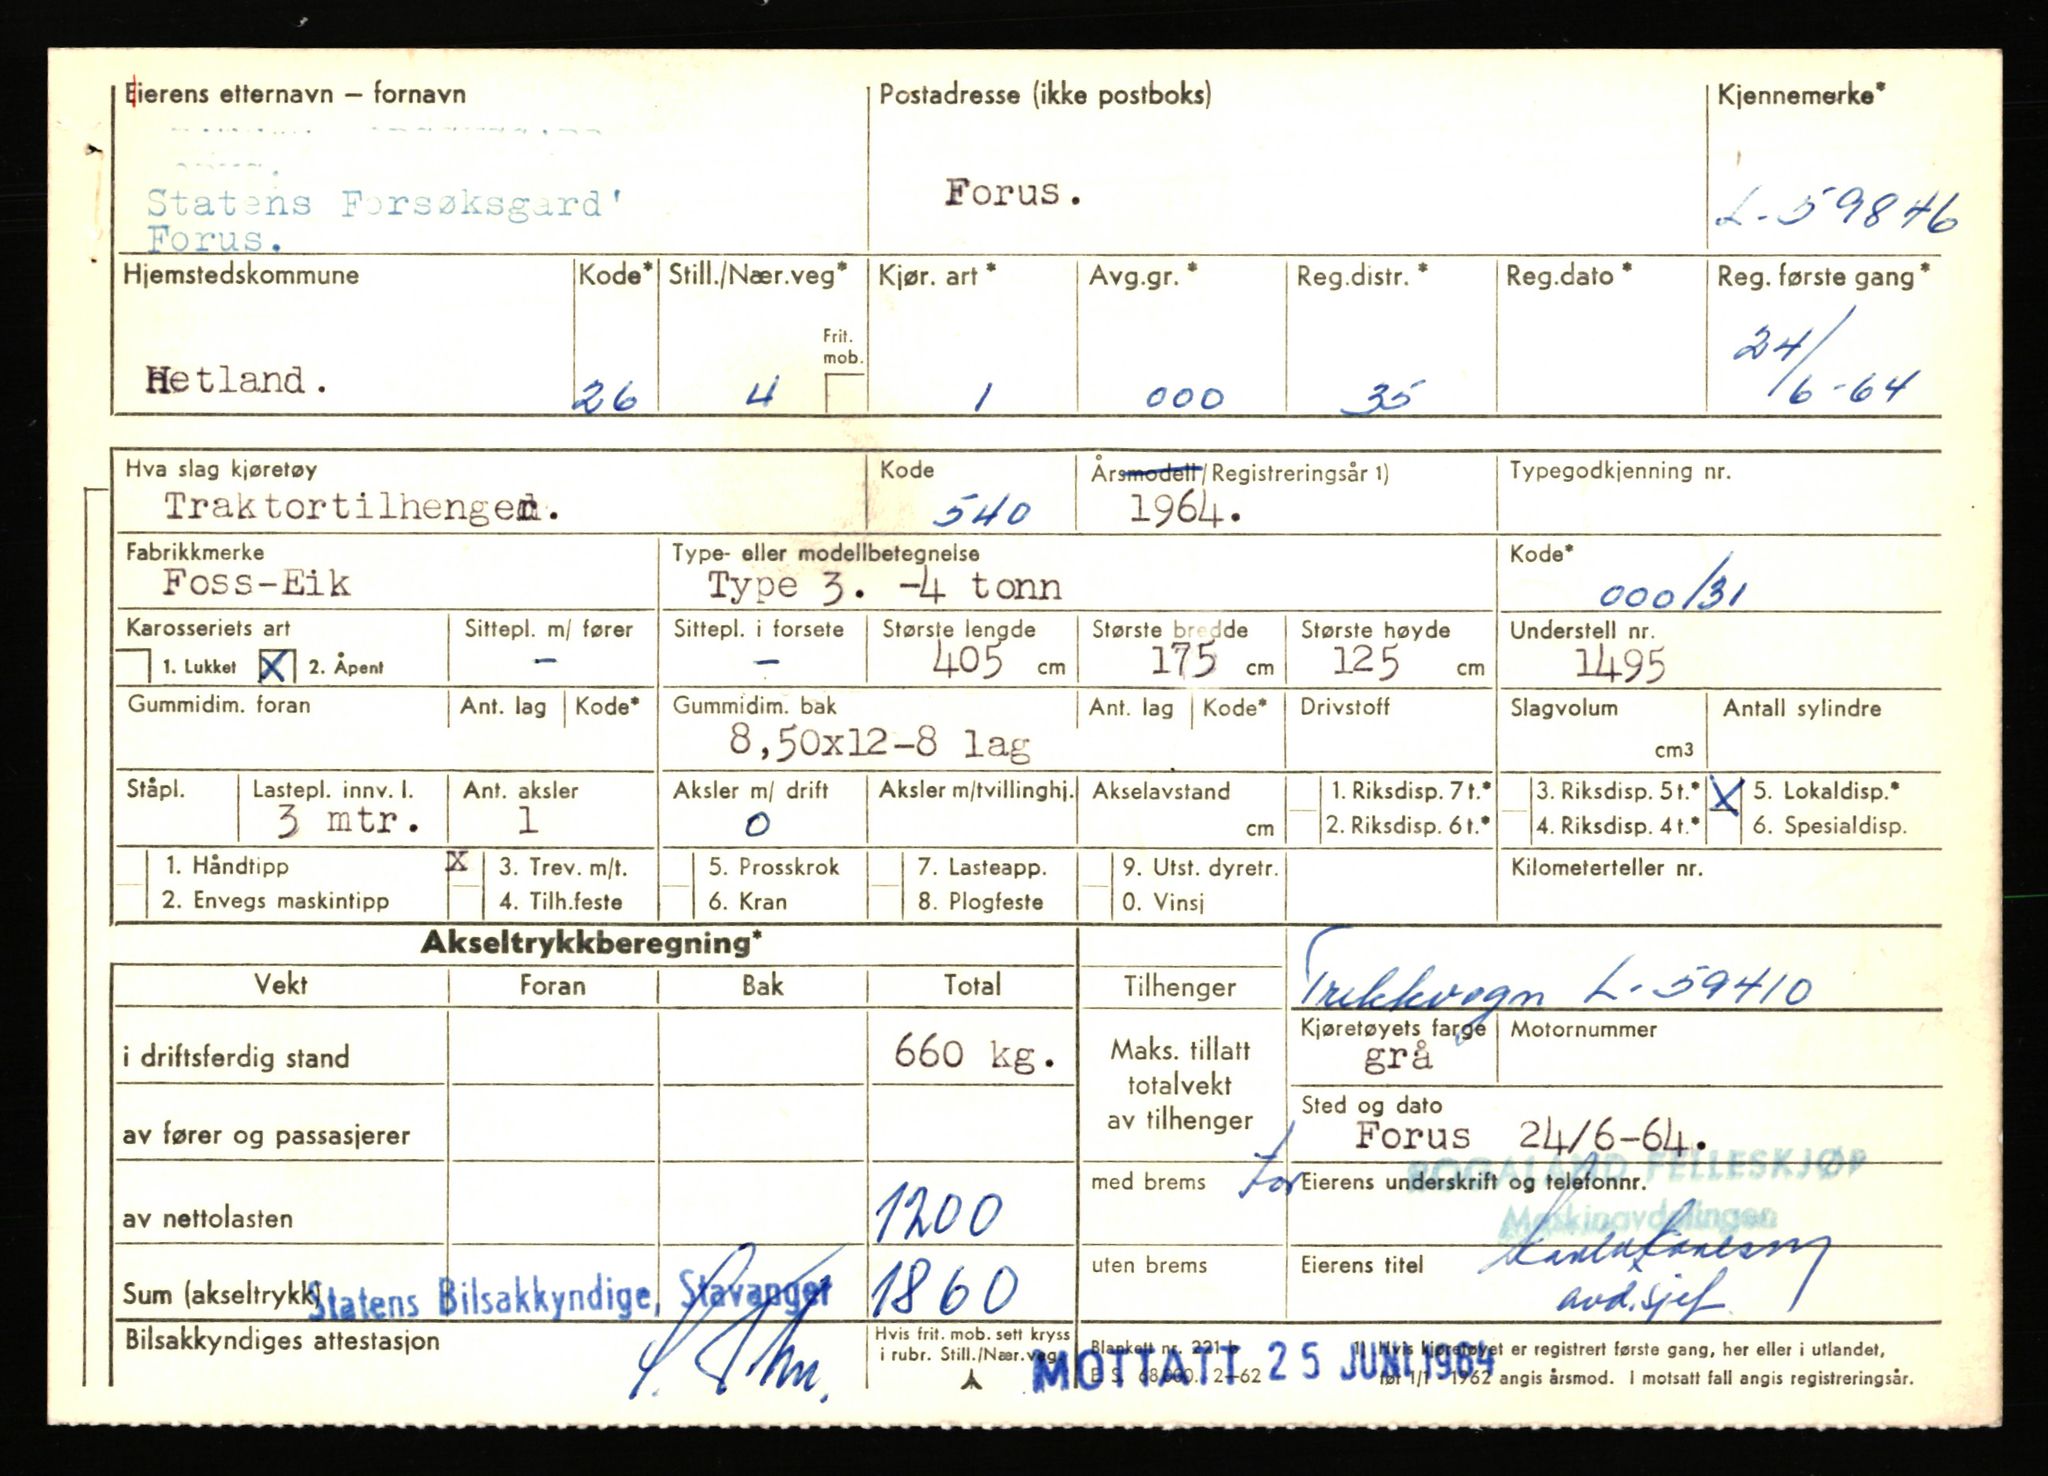 Eierens etternavn – fornavn
Postadresse (ikke postboks)
Kjennemerke*
Statens Forsøksgard'
Forus.
Forus.
L-59846
Hjemstedskommune Kode* Still./Nær.veg* Kjør. art* Avg.gr.* Reg.distr.* Reg.dato* Reg. første gang*
Frit. mob.
Hetland. 26 4 1 000 35 24/6-64
Hva slag kjøretøy Kode Årsmodell/Registreringsår 1) Typegodkjenning nr.
Traktortilhenger. 540 1964.
Fabrikkmerke Type- eller modellbetegnelse Kode*
Foss-Eik Type 3. -4 tonn 000/31
Karosseriets art Sittepl. m/ fører Sittepl. i forsete Største lengde Største bredde Største høyde Understell nr.
1. Lukket X 2. Åpent – – 405 cm 175 cm 125 cm 1495
Gummidim. foran Ant. lag Kode* Gummidim. bak Ant. lag Kode* Drivstoff Slagvolum Antall sylindre
8,50x12-8 lag cm3
Ståpl. Lastepl. innv. l. Ant. aksler Aksler m/ drift Aksler m/tvillinghj. Akselavstand 1. Riksdisp. 7 t.* 3. Riksdisp. 5 t.* X 5. Lokaldisp.*
3 mtr. 1 0 cm 2. Riksdisp. 6 t.* 4. Riksdisp. 4 t.* 6. Spesialdisp.
1. Håndtipp X 3. Trev. m/t. 5. Prosskrok 7. Lasteapp. 9. Utst. dyretr. Kilometerteller nr.
2. Envegs maskintipp 4. Tilh.feste 6. Kran 8. Plogfeste 0. Vinsj
Akseltrykkberegning*
Vekt Foran Bak Total Tilhenger Trekkvogn L-59410
Kjøretøyets farge Motornummer
i driftsferdig stand 660 kg. Maks. tillatt totalvekt av tilhenger grå
Sted og dato
av fører og passasjerer Forus 24/6-64.
ROGALAND FELLESKJØP
med brems for Eierens underskrift og telefonnr.
av nettolasten 1200 Maskinavdelingen
uten brems Eierens titel
Sum (akseltrykk) 1860 avd.sjef
Statens Bilsakkyndige, Stavanger
Bilsakkyndiges attestasjon Hvis frit. mob. sett kryss i rubr. Still./Nær.veg.
Blankett nr. 221 b 1) Hvis kjøretøyet er registrert første gang, her eller i utlandet,
E. S. 68.000. 2–62 før 1/1 1962 angis årsmod. I motsatt fall angis registreringsår.
MOTTATT 25 JUNI 1964